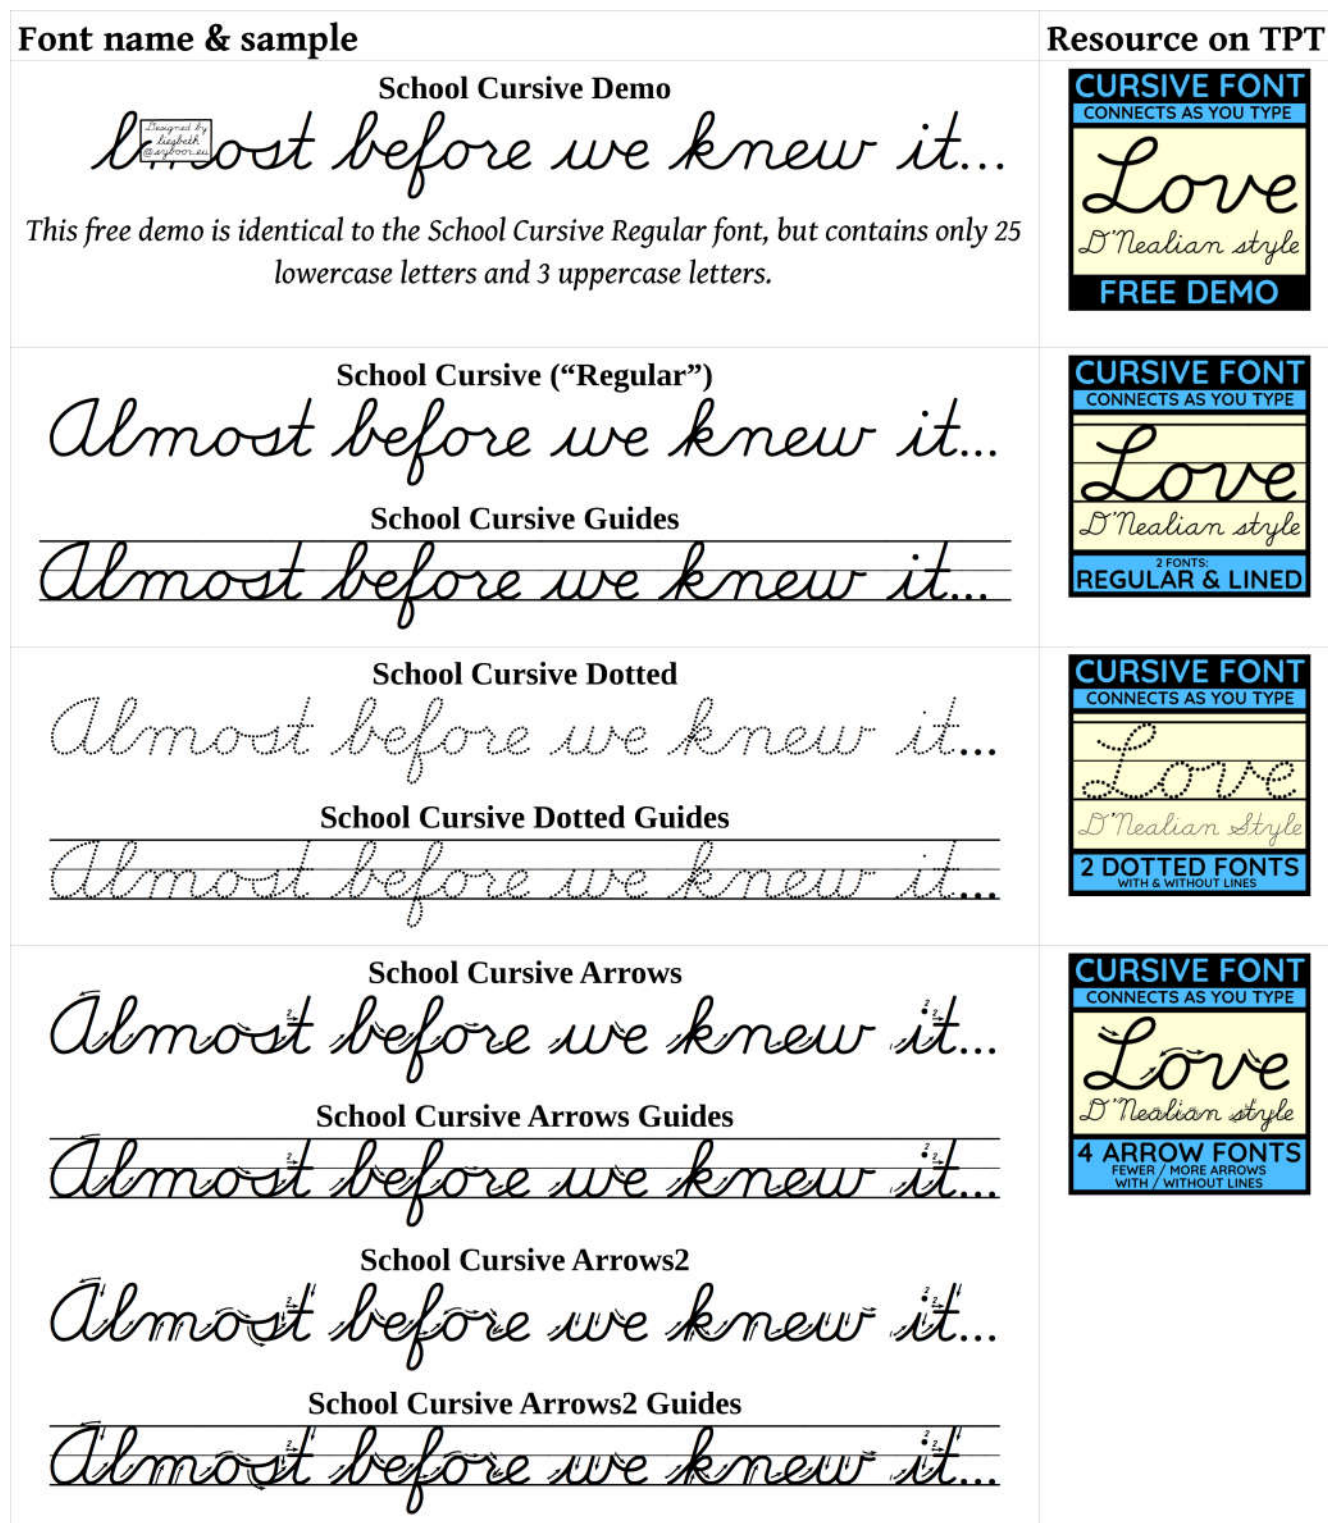 Font name & sample
Resource on TPT
School Cursive Demo
l
Designed by
Liesbeth
@syboor.eu
ost before we knew it...
This free demo is identical to the School Cursive Regular font, but contains only 25
lowercase letters and 3 uppercase letters.
CURSIVE FONT
CONNECTS AS YOU TYPE
Love
D'Nealian style
FREE DEMO
School Cursive (“Regular”)
Almost before we knew it...
School Cursive Guides
Almost before we knew it...
CURSIVE FONT
CONNECTS AS YOU TYPE
Love
D'Nealian style
2 FONTS:
REGULAR & LINED
School Cursive Dotted
Almost before we knew it...
School Cursive Dotted Guides
Almost before we knew it...
CURSIVE FONT
CONNECTS AS YOU TYPE
Love
D'Nealian Style
2 DOTTED FONTS
WITH & WITHOUT LINES
School Cursive Arrows
Almost before we knew it...
School Cursive Arrows Guides
Almost before we knew it...
School Cursive Arrows2
Almost before we knew it...
School Cursive Arrows2 Guides
Almost before we knew it...
CURSIVE FONT
CONNECTS AS YOU TYPE
Love
D'Nealian style
4 ARROW FONTS
FEWER / MORE ARROWS
WITH / WITHOUT LINES